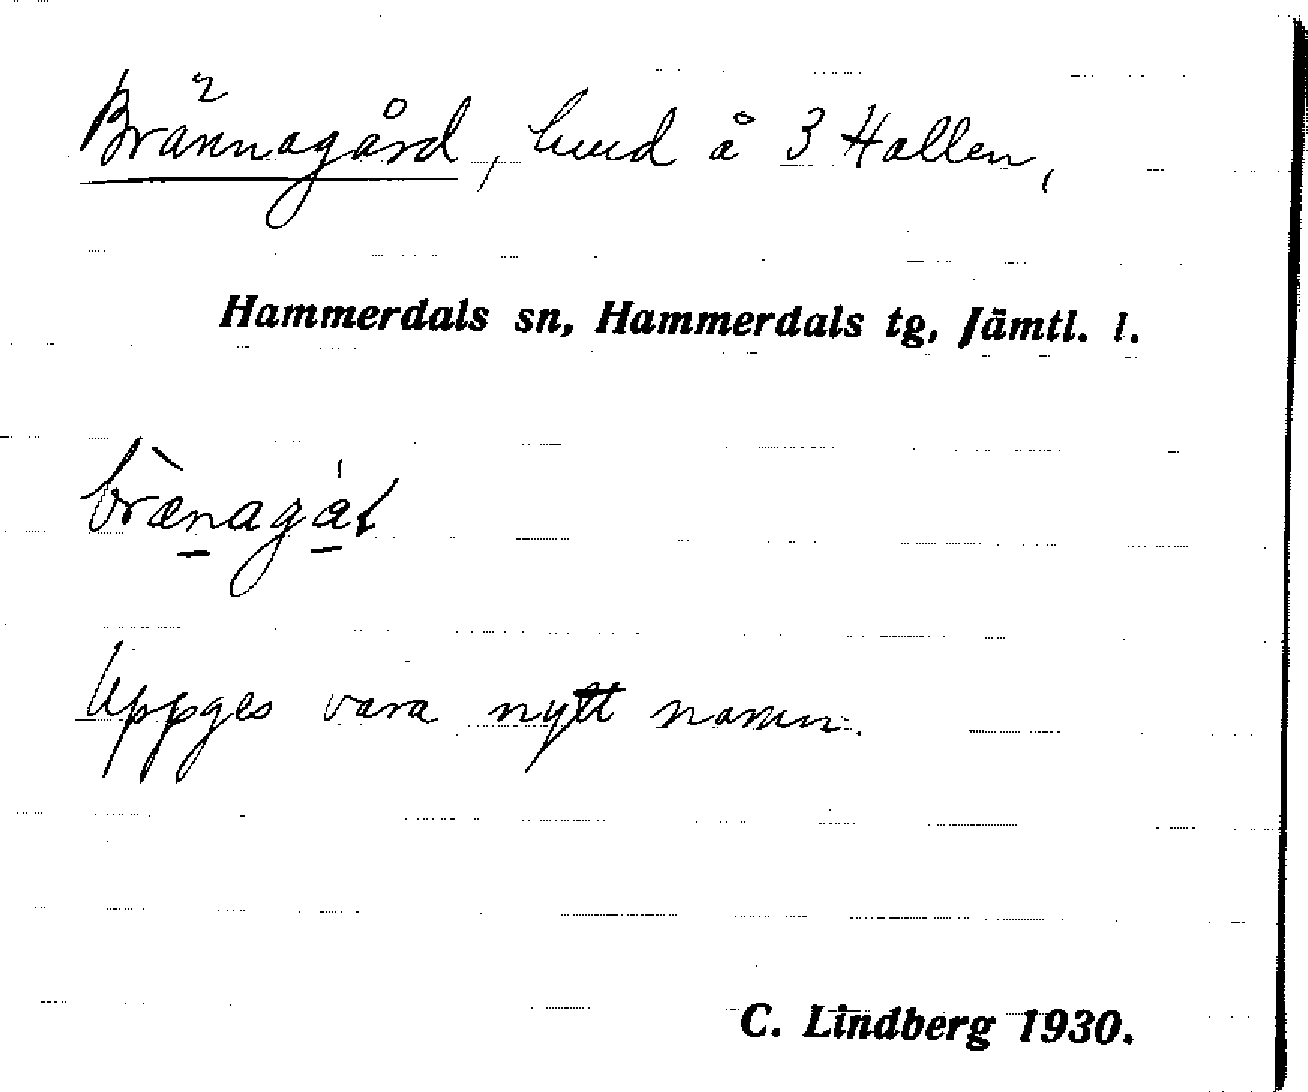 Brännagård, hmd å 3 Hallen,
Hammerdals sn, Hammerdals tg, Jämtl. l.
brænagåt
Uppges vara nytt namn.
C. Lindberg 1930.